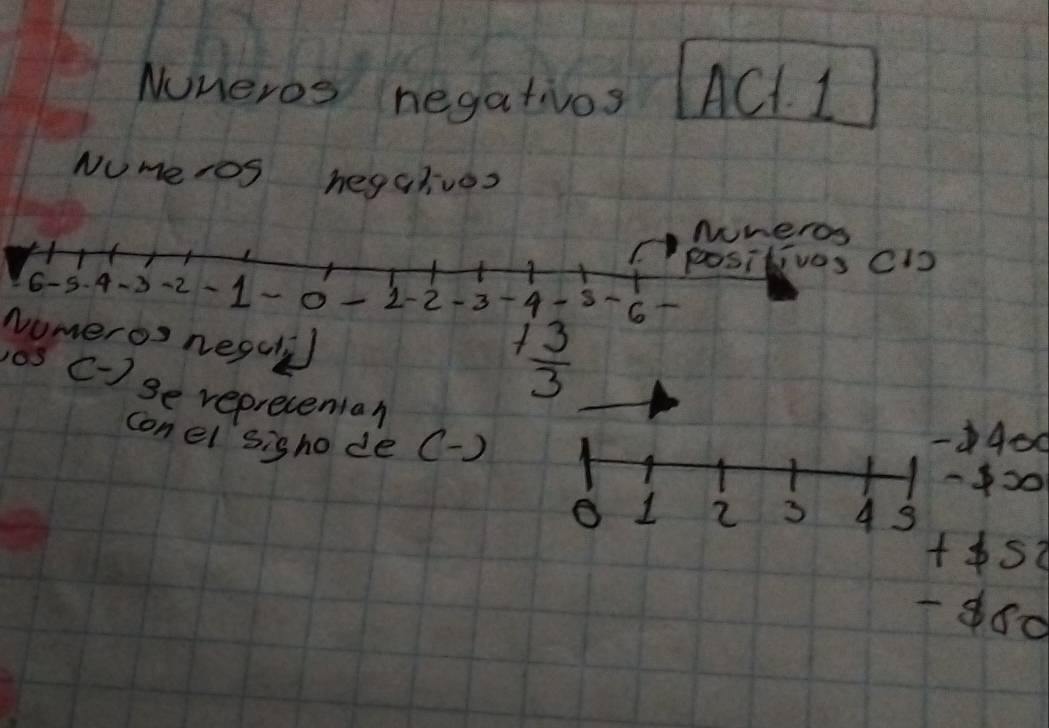 Numeros negativos ACt. 1
Numeros negativos
Numeros
positivos
-6-5-4-3-2-1-0-1-2-3-4-5-6-
Numeros negativos (-)
se reprecentan
con el signo de (-)
+3
3
0 1 2 3 4 5
-$400
+$52